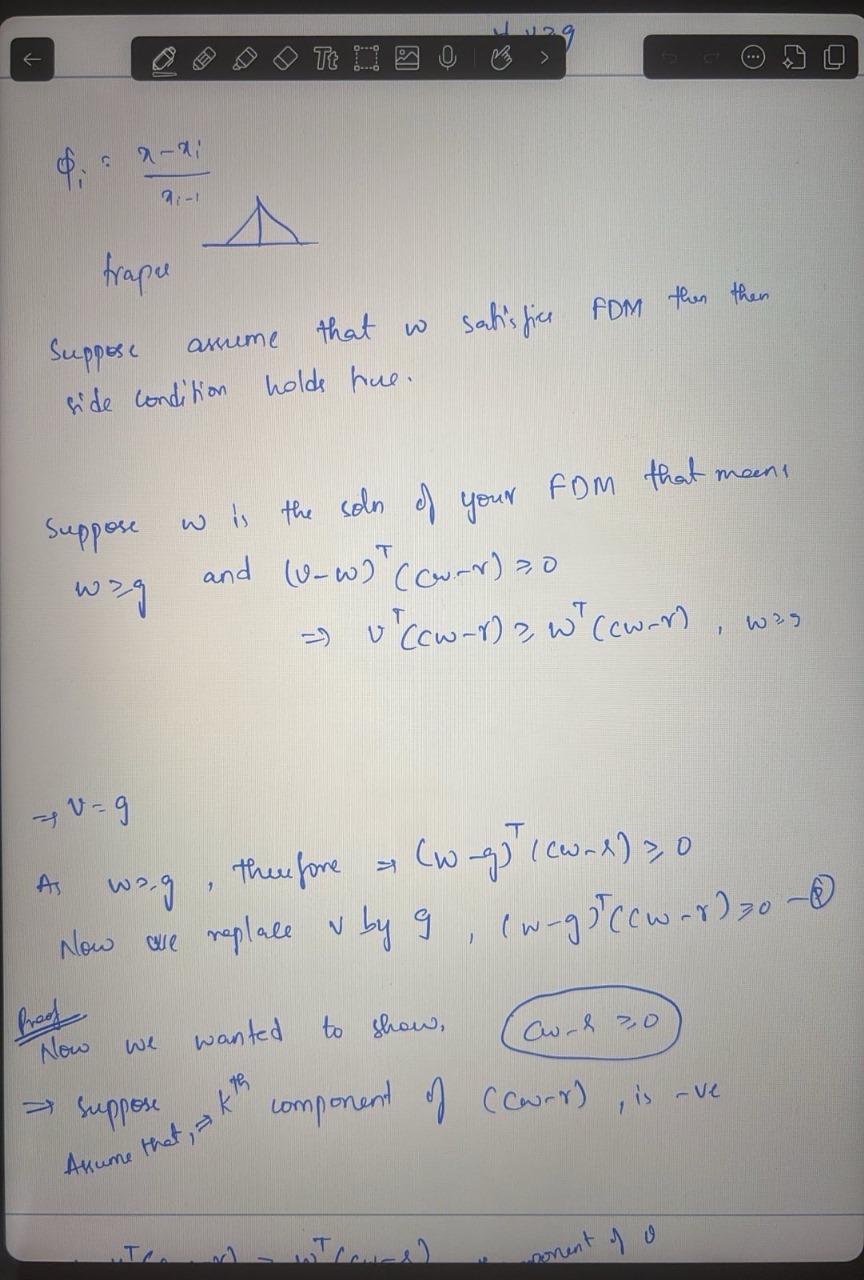 v≥g
Tt
ϕᵢ = (x-xᵢ)/(xᵢ₋₁)
trape
Suppose assume that w satisfies FDM then then
side condition holds true.
Suppose w is the soln of your FDM that means
w≥g and (v-w)ᵀ(Cw-r) ≥ 0
⇒ vᵀ(Cw-r) ≥ wᵀ(Cw-r), w≥g
⇒ v=g
As w≥g, therefore ⇒ (w-g)ᵀ(Cw-r) ≥ 0
Now we replace v by g, (w-g)ᵀ(Cw-r) ≥ 0 -②
Proof
Now we wanted to show, Cw-r ≥ 0
⇒ Suppose
Assume that, ⇒ kᵗʰ component of (Cw-r), is -ve
wᵀ(Cw-r) component of v